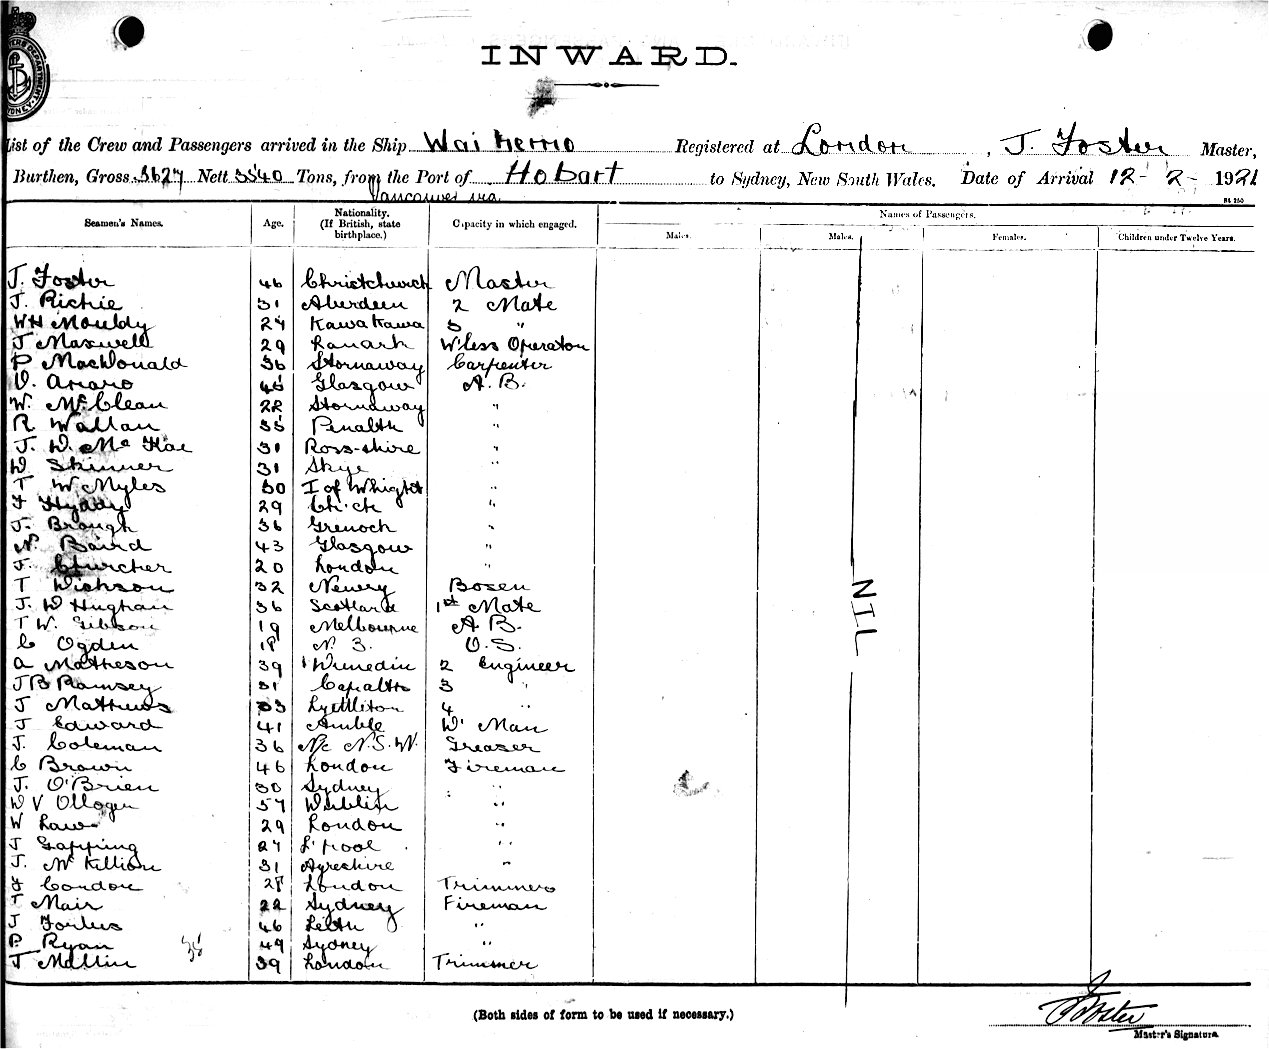 INWARD.
List of the Crew and Passengers arrived in the Ship Registered at London, J. Foster Master,
Burthen, Gross Nett Tons, from the Port of Hobart to Sydney, New South Wales. Date of Arrival 12-2-1921
Vancouver via
Names of Passengers.
Seamen's Names. Age. Nationality. (If British, state birthplace.) Capacity in which engaged. Males. Males. Females. Children under Twelve Years.
J. Foster 46 Christchurch Master
J. Richie 31 Aberdeen 2 Mate
W H Mouldy 24 Kawa Kawa 3 "
J Maxwell 29 Lanark W'less Operator
P MacDonald 36 Stornaway Carpenter
45 Glasgow A. B.
W. McClean 22 Stornaway "
R Wallan 35 "
J. W. 31 Ross-shire "
W Skinner 31 Skye "
T W Myles 30 I of Whight "
29 "
J. Brough 36 Grenoch "
N. Baird 43 Glasgow "
J. Churcher 20 London "
T Dickson 32 Newry Bosen
J. W Hughan 36 Scotland 1st Mate
T W. Gibson 19 Melbourne A B.
C Ogden 18 N. Z. O. S.
A Matheson 39 Dunedin 2 Engineer
J B Ramsey 31 3 "
J Mathews 33 Lyttleton 4 "
J Edward 41 Amble W' Man
J. Coleman 36 N/c N.S.W. Greaser
C Brown 46 London Fireman
J. O'Brien 30 Sydney "
W V 57 Dublin "
W Law 29 London "
J Gapping 27 L'Pool "
J. McKillion 31 Ayreshire "
J Condon 28 London Trimmers
T Mair 22 Sydney Fireman
J 46 Leith "
P. Ryan 49 Sydney "
T 39 London Trimmer
NIL
35
(Both sides of form to be used if necessary.)
J Foster
Master's Signature.